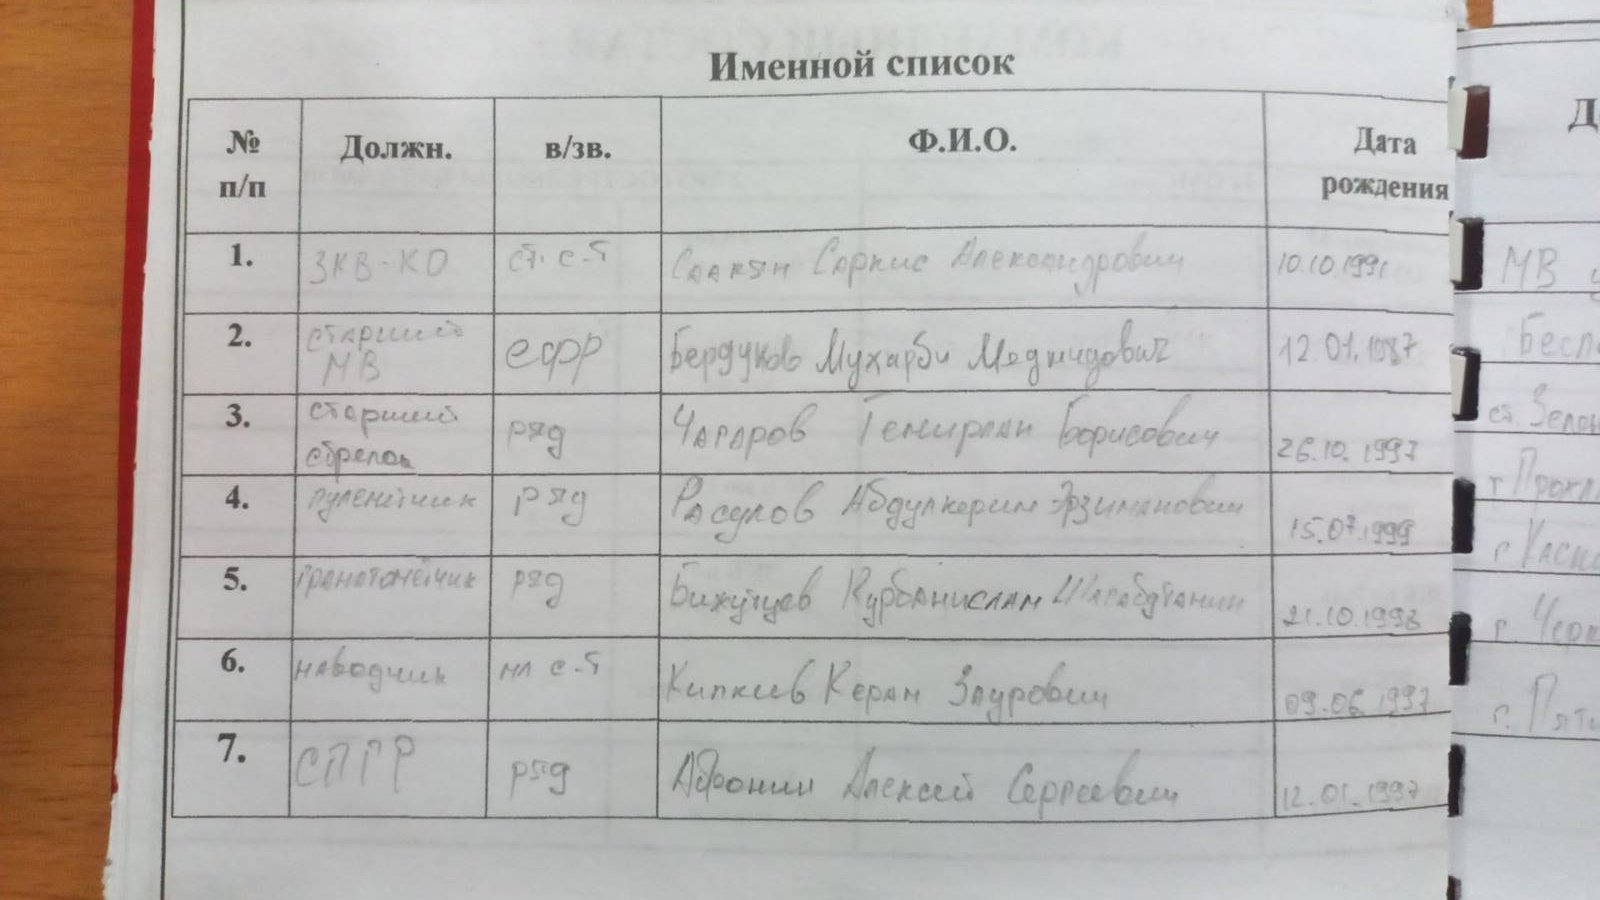 Именной список
№ п/п Должн. в/зв. Ф.И.О. Дата рождения
1. ЗКВ-КО ст. с-т Саакян Саркис Александрович 10.10.1991 МВ
2. старший МВ ефр Бердуков Мухарби Меджидович 12.01.1987 Бесл
3. старший стрелок ряд Чагаров Темирлан Борисович 26.10.1997 ст. Зелен
4. пулемётчик ряд Расулов Абдулкерим Эрзиманович 15.07.1999 Прохл
5. гранатомётчик ряд Курбанислам 21.10.1998 г.
6. наводчик мл с-т Кипкеев Керам Заурович 09.06.1997 г.
7. СПГР ряд Афонин Алексей Сергеевич 12.01.1997 г. Пяти